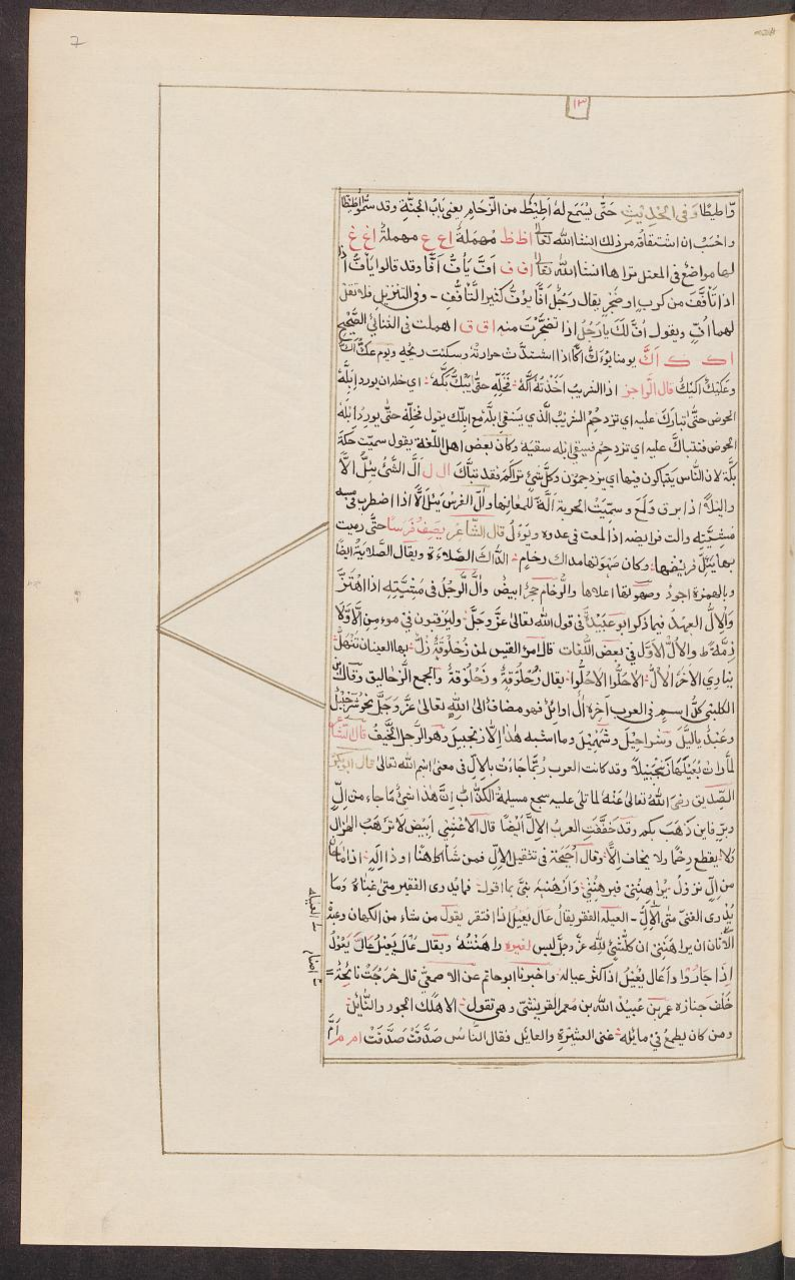 7
١٣
وّاطيطًا وَفى الحَدِيثِ حَتّى يُسْمَع لهُ اَطِيْطٌ من الزّحام يعنى بَابُ الجنّةِ وقد سَمُّوا اطِيْطًا
واحْسَبُ ان اشتقاقهُ من ذلك انشاالله تعالٰى اظ ظ مُهمَلة اع ع مهملةٌ اغ غ
لهما مواضعُ فى المعتل تراها انشاالله تعالٰى اف ف اَفَّ يَأُفُّ اَفًّا وقد قالوا يَأفُّ اذا
اذا تأفَّفَ من كربٍ او ضَجَرٍ يقال رَجُلٌ اَفَّا فٌ كثير التَّأفُّفِ - وفى التنزيل فلا تقل
لهما اُفٍّ ويقول اُفّاً لَكَ يا رَجُلُ اذا تضجَّرْتَ منه اق ق اهملت فى الثنائى الصَّحِيْحِ
اك ك اَكَّ يومنا يَؤُكُّ اَكًّا اذا اشتدَّتْ حرارتهُ وسكنت ريحُه ويوم عكٌّ اَكٌّ
وعَكِيْكٌ اَكِيْكٌ قال الرَّاجز اذا الشريبُ اخَذَتْهُ اَكَّهْ فَخَلِّهِ حتّى يَبُكَّ بَكَّهْ اى خله ان يورد ابله
الحوض حتّى تباكَّ عليه اى تزدحم الشريبُ الَّذى يسقى ابلَهٗ مع ابلك يقول فخلِّه حتّى يورد ابله
الحوض فتباكَّ عليه اى تزدحم فيسقى ابله سقيه وكان بعض اهل اللّغة يقول سميّت مكة
بكَّة لان النّاس يتباكون فيها اى يزدحمون وكلّ شئ تراكَمَ فقد تباكَّ ال ل اَلَّ الشَّئُ يئلُّ اَلًّا
واليلا اذا برق وَلَمَعَ وسمِّيَتْ الحربة اَلَّةً للمعانها واَلَّ الفرسُ يَئِلُّ اَلًّا اذا اضطرب فى
مشِيَّتِه والت فرايصه اذا لمعت فى عدوه ويَؤُلُّ قال الشَّاعر يصِفُ فَرَسًا حتّى رميت
بها يَئِلّ فريْصُها وكان صَهْوَتها مداك رخامِ المداكُ الصَّلاءة ويقال الصَّلايَةُ ايضًا
وبالهمزة اجودُ وصهوتها اعلاها والرُّخام حجرٌ ابيضُ واَلَّ الرجُلُ فى مِشْيَتِهِ اذا اهْتَزَّ
وَالاِلُّ العهدُ فيما ذكر ابو عَبَيْدَة فى قول الله تعالى عَزَّ وَجَلَّ وليرقبون فى مومن اِلًّا وَلَا
ذِمَّةً ط والاُلُّ الاوّل فى بعض اللغات قال امرؤ القيس لمن زُحْلُوقَةٌ زُلُّ بها العينان تَنْهَلُّ
ينادِى الآخرُ الاُلُّ الاحُلُّوا الاحُلُّوا يقال زُحْلُوقةٌ وزُحْلُوفةٌ والجمع الزّحاليق وقال ابن
الكلبى كلُّ اسم فى العرب آخره اِلٌّ او ايْلُ فهو مضاف الى اللهِ تعالى عَزَّ وَجَلَّ نحو شُرَحْبِيْل
وعَبْدُ يالِيْلَ وشراحِيْلَ وشِهْمِيْلَ وما اشبه هٰذا اِلّا زنجبيلَ وهو الرّجل النَّحِيفُ قال الشّاعر
لمّا رات بُعَيْلَهَا زَنْجَبِيْلا وقد كانت العرب ربَّما جَاءَت بالاِلِّ فى معنى اسم الله تعالى قال ابو بكر
الصّديق رضى اللهُ تعالى عَنْهُ لما تلى عليه سجع مسيلمة الكذّاب اِنَّ هٰذا شئٌ مَا جاء من اِلٍّ
وبِرٍّ فاين ذُهَبَ بكم وقد خَفَّفَتِ العربُ الاِلَّ ايضًا قال الاعشى ابيَضُ لا يَرْهَبُ الهُزال
وَلا يقطع رحمًا ولا يخاف اِلّا وقال اُحَيْحَة فى تثقيل الاِلِّ فمن شأ كاهنًا او ذا اِلٰهٍ اذا ما حان
من اِلٍّ نزولُ يُراهنُنى فيرهنُنى وَارْهَنُهُ بَنِىَّ بما اقول فما يَدرى الفقير متى غناهُ وَمَا
يَدْرى الغنىّ متٰى يَعيْلُ العيلة الفقر يقال عَالَ يَعِيْلُ اذا افتقر يقول من شاء من الكهان وعبد
الاوثان ان يراهَنَنى ان كلَّ شئ لله عزّوجلّ ليس لغيره راهَنْتُهُ ويقال عَالَ يَعِيْلُ عَالَ يَعُوْلُ
اِذَا جَارَ واَعال يُعِيْلُ اذا كثر عياله واخبرنا ابو حاتم عن الاصمعىّ قال خرَجَتْ نائِحَةٌ
خَلْفَ جنازه عمر بن عُبيْد الله بن معمر القريشىّ وهى تقول الا هَلَك الجود والنَّائِل
ومن كان يطمعُ فى مايله غنى العشيرة والعايل فقال النّاسُ صَدَقْتِ صَدَقْتِ ام م اَمَّ